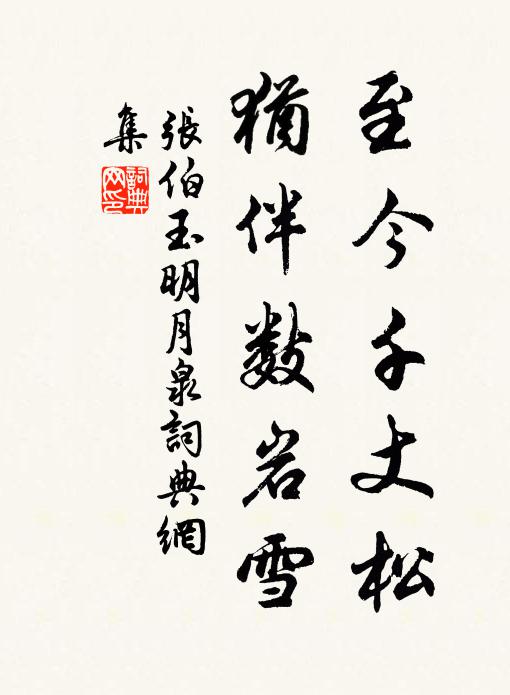 至今千丈松
猶伴数岩雪
張伯玉明月泉詞典網
集
詞典
网印